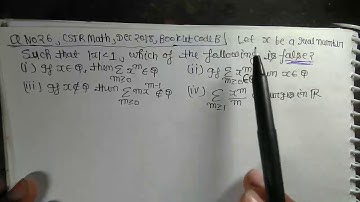 Q No 26, CSIR Math, Dec 2018, Booklet code B Let x be a real number
Such that |x|<1, which of the following is false?
(i) If x∈Q, then ∑ m≥0 x^m ∈Q (ii) If ∑ m≥0 x^m ∈Q then x∈Q
(iii) If x∉Q then ∑ m≥0 m x^(m-1) ∉Q (iv) ∑ m≥1 x^m/m in R